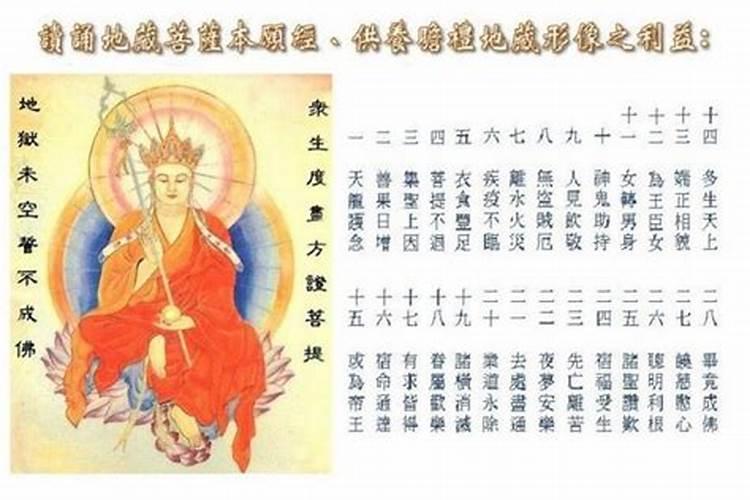 讀誦地藏菩薩本願經、供養瞻禮地藏形像之利益:
眾生度盡方證菩提
地獄未空誓不成佛
一 天龍護念
二 善果日增
三 集聖上因
四 菩提不退
五 衣食豐足
六 疾疫不臨
七 離水火災
八 無盜賊厄
九 人見欽敬
十 神鬼助持
十一 女轉男身
十二 為王臣女
十三 端正相貌
十四 多生天上
十五 或為帝王
十六 宿命通達
十七 有求皆得
十八 眷屬歡樂
十九 諸橫消滅
二十 業道永除
二一 去處盡通
二二 夜夢安樂
二三 先亡離苦
二四 宿福受生
二五 諸聖讚歎
二六 聰明利根
二七 饒慈愍心
二八 畢竟成佛